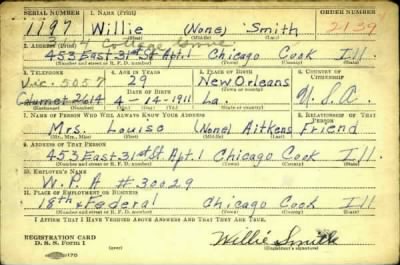 SERIAL NUMBER 1. NAME (Print) ORDER NUMBER
1197 Willie (None) Smith 2139
(First) (Middle) (Last)
2. ADDRESS (Print)
453 East-31st St Apt.1 Chicago Cook Ill.
(Number and street or R. F. D. number) (Town) (County) (State)
3. TELEPHONE 4. AGE IN YEARS 5. PLACE OF BIRTH 6. COUNTRY OF CITIZENSHIP
Vic. 5057 29 New Orleans
DATE OF BIRTH (Town or county)
Calumet 2614 4-14-1911 La. U.S.A.
(Exchange) (Number) (Mo.) (Day) (Yr.) (State or country)
7. NAME OF PERSON WHO WILL ALWAYS KNOW YOUR ADDRESS 8. RELATIONSHIP OF THAT PERSON
Mrs. Louise (None) Aitkens Friend
(Mr., Mrs., Miss) (First) (Middle) (Last)
9. ADDRESS OF THAT PERSON
453 East-31st St. Apt.1 Chicago Cook Ill.
(Number and street or R. F. D. number) (Town) (County) (State)
10. EMPLOYER'S NAME
W.P.A #30029
11. PLACE OF EMPLOYMENT OR BUSINESS
18th & Federal Chicago Cook Ill
(Number and street or R. F. D. number) (Town) (County) (State)
I AFFIRM THAT I HAVE VERIFIED ABOVE ANSWERS AND THAT THEY ARE TRUE.
REGISTRATION CARD
D. S. S. Form 1 Willie Smith
(Registrant's signature)